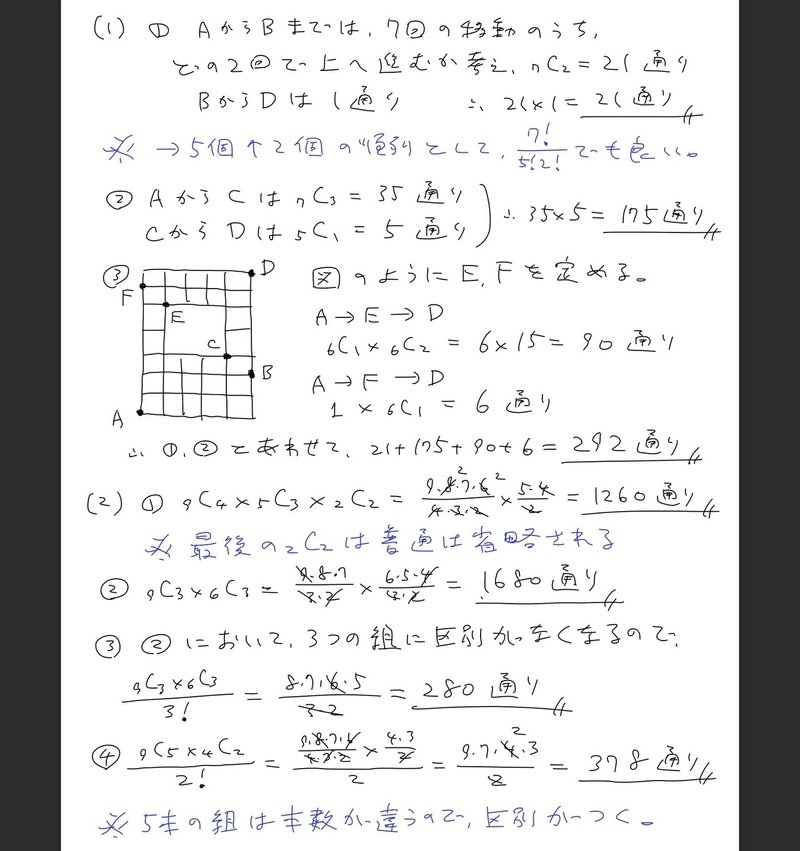 (1) ① AからBまでは、7回の移動のうち、
どの2回で上へ進むか考え、₇C₂ = 21 通り
BからDは1通り ∴ 21×1 = 21通り
※ →5個↑2個の順列として、7!/5!2! でも良い。
② AからCは ₇C₃ = 35 通り
CからDは ₅C₁ = 5 通り
∴ 35×5 = 175通り
③ 図のようにE, Fを定める。
D
F
E
C
B
A
A→E→D
₆C₁×₆C₂ = 6×15 = 90 通り
A→F→D
1×₆C₁ = 6 通り
∴ ①,②とあわせて、21+175+90+6 = 292通り
(2) ① ₉C₄×₅C₃×₂C₂ = 9·8·7·6/4·3·2 × 5·4/2 = 1260通り
※ 最後の₂C₂は普通は省略される
② ₉C₃×₆C₃ = 9·8·7/3·2 × 6·5·4/3·2 = 1680通り
③ ②において、3つの組に区別がなくなるので、
₉C₃×₆C₃/3! = 8·7·6·5/3·2 = 280通り
④ ₉C₅×₄C₂/2! = 9·8·7·6/4·3·2 × 4·3/2 /2 = 9·7·4·3/2 = 378通り
※ 5本の組は本数が違うので、区別がつく。